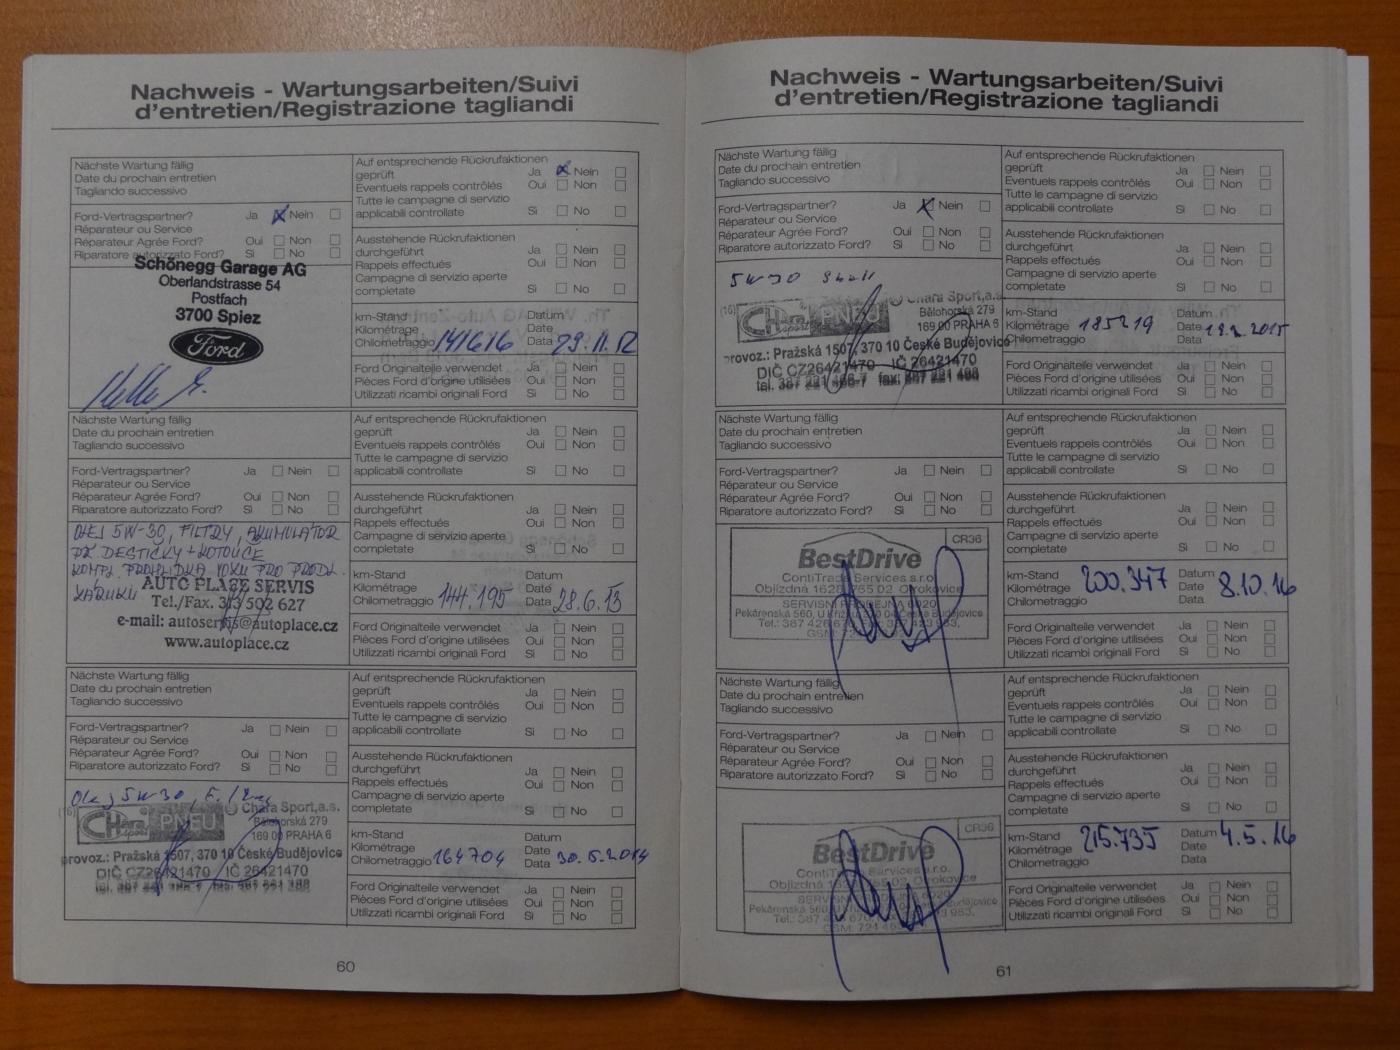 Nachweis - Wartungsarbeiten/Suivi
d'entretien/Registrazione tagliandi
Nächste Wartung fällig
Date du prochain entretien
Tagliando successivo
Ford-Vertragspartner? Ja Nein
Réparateur ou Service
Réparateur Agrée Ford? Oui Non
Riparatore autorizzato Ford? Sì No
Schönegg Garage AG
Oberlandstrasse 54
Postfach
3700 Spiez
Ford
Auf entsprechende Rückrufaktionen
geprüft Ja Nein
Eventuels rappels contrôlés Oui Non
Tutte le campagne di servizio
applicabili controllate Sì No
Ausstehende Rückrufaktionen
durchgeführt Ja Nein
Rappels effectués Oui Non
Campagne di servizio aperte
completate Sì No
km-Stand Datum
Kilométrage Date
Chilometraggio 141616 Data 29.11.12
Ford Originalteile verwendet Ja Nein
Pièces Ford d'origine utilisées Oui Non
Utilizzati ricambi originali Ford Sì No
Nächste Wartung fällig
Date du prochain entretien
Tagliando successivo
Ford-Vertragspartner? Ja Nein
Réparateur ou Service
Réparateur Agrée Ford? Oui Non
Riparatore autorizzato Ford? Sì No
OLEJ 5W-30, FILTRY, AKUMULATOR
PŘ. DESTIČKY + KOTOUČE
KOMPL. PROHLÍDKA VOZU PRO PRODL.
ZÁRUKU
AUTO PLACE SERVIS
Tel./Fax. 313 502 627
e-mail: autoservis@autoplace.cz
www.autoplace.cz
Auf entsprechende Rückrufaktionen
geprüft Ja Nein
Eventuels rappels contrôlés Oui Non
Tutte le campagne di servizio
applicabili controllate Sì No
Ausstehende Rückrufaktionen
durchgeführt Ja Nein
Rappels effectués Oui Non
Campagne di servizio aperte
completate Sì No
km-Stand Datum
Kilométrage Date
Chilometraggio 144.195 Data 28.6.13
Ford Originalteile verwendet Ja Nein
Pièces Ford d'origine utilisées Oui Non
Utilizzati ricambi originali Ford Sì No
Nächste Wartung fällig
Date du prochain entretien
Tagliando successivo
Ford-Vertragspartner? Ja Nein
Réparateur ou Service
Réparateur Agrée Ford? Oui Non
Riparatore autorizzato Ford? Sì No
Olej 5W30
(16) CHara sport PNEU Chara Sport,a.s.
Bělohorská 279
169 00 PRAHA 6
provoz.: Pražská 1507, 370 10 České Budějovice
DIČ CZ26421470 IČ 26421470
Auf entsprechende Rückrufaktionen
geprüft Ja Nein
Eventuels rappels contrôlés Oui Non
Tutte le campagne di servizio
applicabili controllate Sì No
Ausstehende Rückrufaktionen
durchgeführt Ja Nein
Rappels effectués Oui Non
Campagne di servizio aperte
completate Sì No
km-Stand Datum
Kilométrage Date
Chilometraggio 164704 Data 30.5.2014
Ford Originalteile verwendet Ja Nein
Pièces Ford d'origine utilisées Oui Non
Utilizzati ricambi originali Ford Sì No
60
Nachweis - Wartungsarbeiten/Suivi
d'entretien/Registrazione tagliandi
Nächste Wartung fällig
Date du prochain entretien
Tagliando successivo
Ford-Vertragspartner? Ja Nein
Réparateur ou Service
Réparateur Agrée Ford? Oui Non
Riparatore autorizzato Ford? Sì No
5W30 Shell
(16) CHara sport PNEU Chara Sport,a.s.
Bělohorská 279
169 00 PRAHA 6
provoz.: Pražská 1507, 370 10 České Budějovice
DIČ CZ26421470 IČ 26421470
tel. 387 221 466-7 fax: 387 221 468
Auf entsprechende Rückrufaktionen
geprüft Ja Nein
Eventuels rappels contrôlés Oui Non
Tutte le campagne di servizio
applicabili controllate Sì No
Ausstehende Rückrufaktionen
durchgeführt Ja Nein
Rappels effectués Oui Non
Campagne di servizio aperte
completate Sì No
km-Stand Datum
Kilométrage 185219 Date 12.2.2015
Chilometraggio Data
Ford Originalteile verwendet Ja Nein
Pièces Ford d'origine utilisées Oui Non
Utilizzati ricambi originali Ford Sì No
Nächste Wartung fällig
Date du prochain entretien
Tagliando successivo
Ford-Vertragspartner? Ja Nein
Réparateur ou Service
Réparateur Agrée Ford? Oui Non
Riparatore autorizzato Ford? Sì No
CR36
BestDrive
ContiTrade Services s.r.o.
Objízdná 1628, 765 02 Otrokovice
SERVISNÍ PRODEJNA 6020
Pekárenská 560, České Budějovice
Auf entsprechende Rückrufaktionen
geprüft Ja Nein
Eventuels rappels contrôlés Oui Non
Tutte le campagne di servizio
applicabili controllate Sì No
Ausstehende Rückrufaktionen
durchgeführt Ja Nein
Rappels effectués Oui Non
Campagne di servizio aperte
completate Sì No
km-Stand 200.347 Datum
Kilométrage Date 8.10.16
Chilometraggio Data
Ford Originalteile verwendet Ja Nein
Pièces Ford d'origine utilisées Oui Non
Utilizzati ricambi originali Ford Sì No
Nächste Wartung fällig
Date du prochain entretien
Tagliando successivo
Ford-Vertragspartner? Ja Nein
Réparateur ou Service
Réparateur Agrée Ford? Oui Non
Riparatore autorizzato Ford? Sì No
CR36
BestDrive
Objízdná Otrokovice
Pekárenská 560
Auf entsprechende Rückrufaktionen
geprüft Ja Nein
Eventuels rappels contrôlés Oui Non
Tutte le campagne di servizio
applicabili controllate Sì No
Ausstehende Rückrufaktionen
durchgeführt Ja Nein
Rappels effectués Oui Non
Campagne di servizio aperte
completate Sì No
km-Stand 215.735 Datum 4.5.16
Kilométrage Date
Chilometraggio Data
Ford Originalteile verwendet Ja Nein
Pièces Ford d'origine utilisées Oui Non
Utilizzati ricambi originali Ford Sì No
61